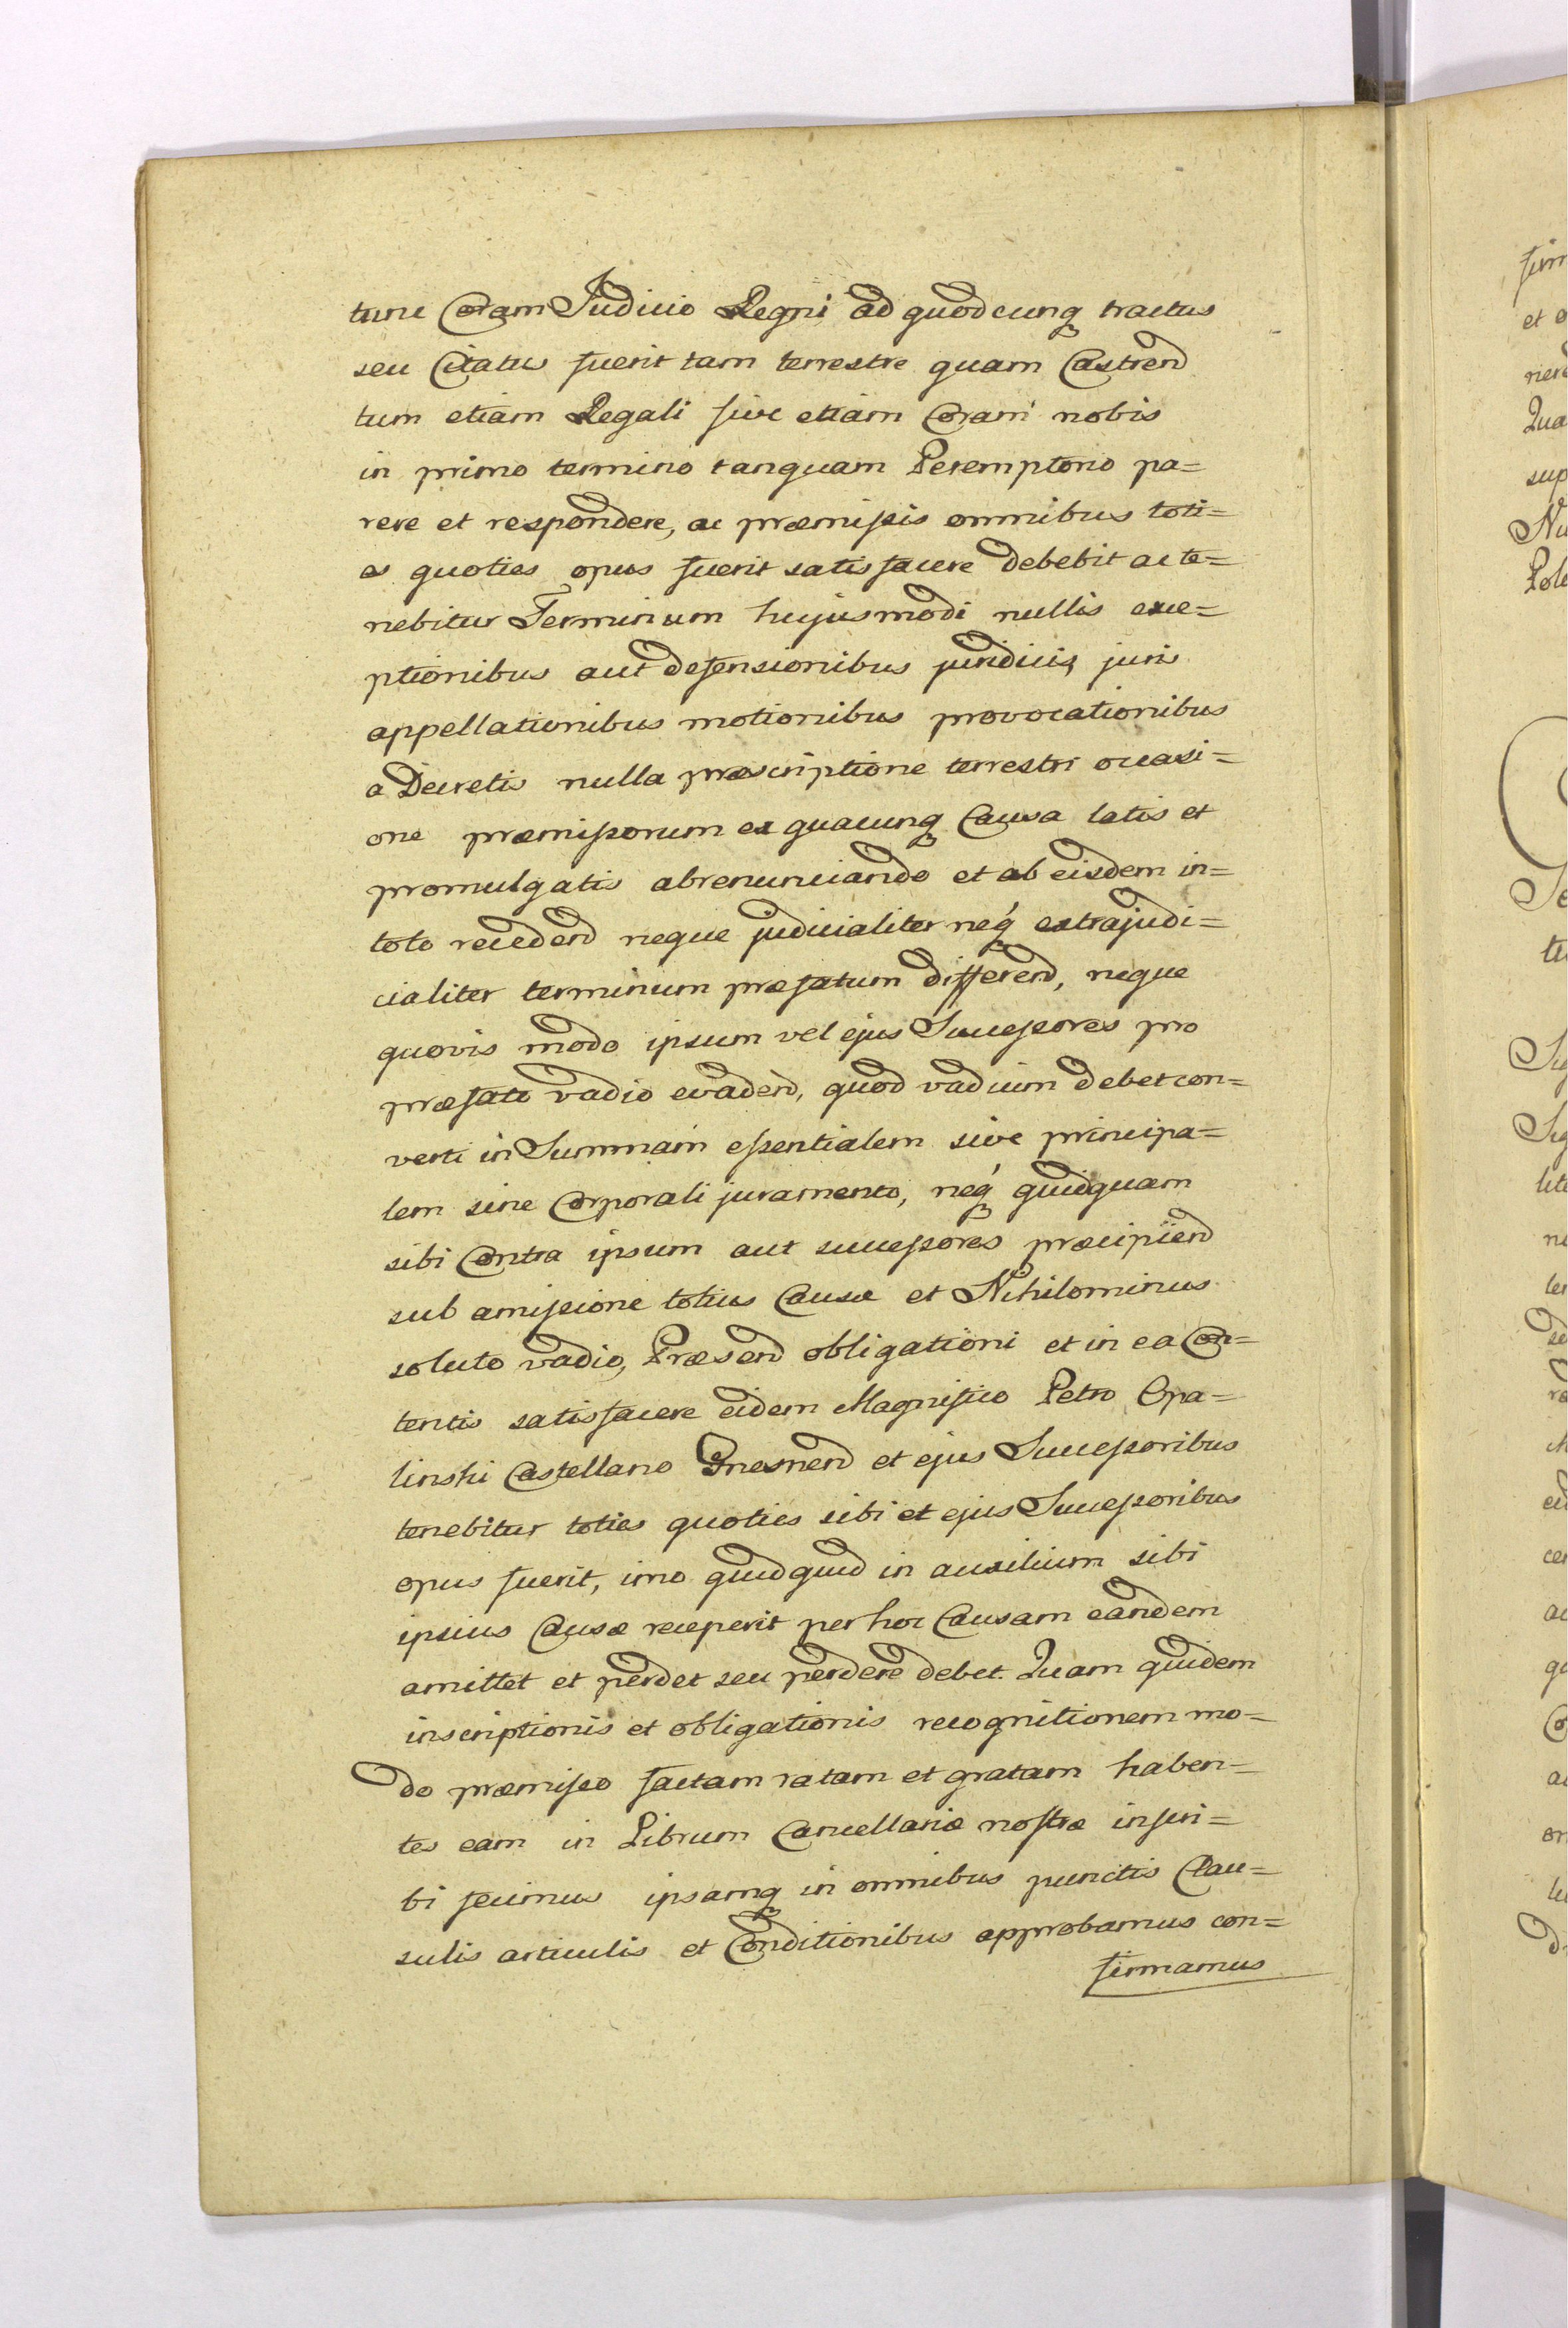 tunc Coram Judicio Regni ad quodcunq tractus
seu Citatus fuerit tam terrestre quam Castrend
tum etiam Regali sive etiam Coram nobis
in primo termino tanquam Peremptorio pa=
rere et respondere, ac præmissis omnibus toti=
es quoties opus fuerit satisfacere debebit ac te=
nebitur Terminum hujusmodi nullis exce=
ptionibus aut defensionibus juridicis juris
appellationibus motionibus provocationibus
a Decretis nulla præscriptione terrestri occasi=
one præmissorum ex quacunq Causa latis et
promulgatis abrenunciando et ab eisdem in=
toto recedend neque judicialiter neq́ extrajudi=
cialiter terminum præfatum differend, neque
quovis modo ipsum vel ejus Successores pro
præfato vadio evadend, quod vadium debet con=
verti in Summam essentialem sive principa=
lem sine Corporali juramento, neq́ quidquam
sibi Contra ipsum aut successores præcipiend
sub amissione totius Causæ et Nihilominus
soluto vadio, Præsend obligationi et in ea Con=
tentis satisfacere eidem Magnifico Petro Opa=
linski Castellano Gnesnend et ejus Successoribus
tenebitur toties quoties sibi et ejus Successoribus
opus fuerit, imo quidquid in auxilium sibi
ipsius Causæ receperit per hoc Causam eandem
amittet et perdet seu perdere debet. Quam quidem
inscriptionis et obligationis recognitionem mo=
do præmisso factam ratam et gratam haben=
tes eam in Librum Cancellariæ nostræ inscri=
bi fecimus ipsamq in omnibus punctis Clau=
sulis articulis et Conditionibus approbamus con=
firmamus